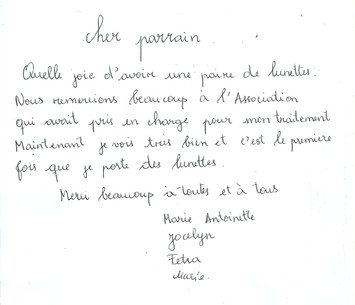 cher parrain
Quelle joie d'avoir une paire de lunettes.
Nous remercions beaucoup à l'Association
qui avait pris en charge pour mon traitement
Maintenant je vois très bien et c'est le première
fois que je porte des lunettes.
Merci beaucoup à toutes et à tous
Marie Antoinette
Jocelyn
Fetra
Marie